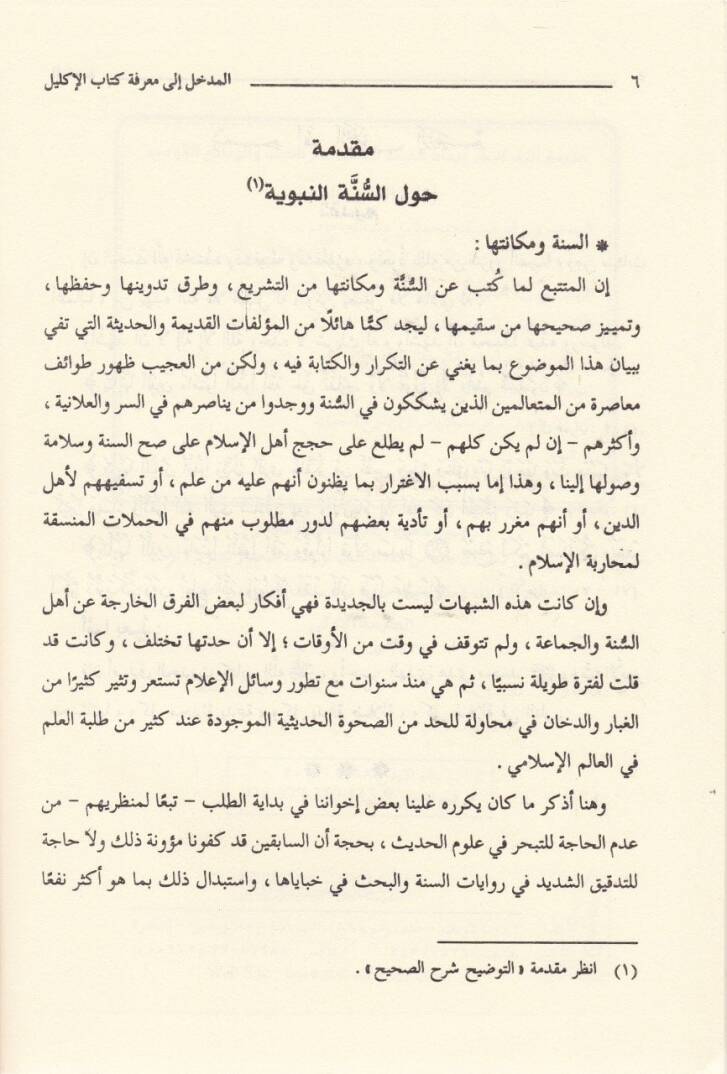 ٦ المدخل إلى معرفة كتاب الإكليل
مقدمة
حول السُّنَّة النبوية(١)
* السنة ومكانتها :
إن المتتبع لما كُتب عن السُّنَّة ومكانتها من التشريع ، وطرق تدوينها وحفظها ،
وتمييز صحيحها من سقيمها ، ليجد كمًّا هائلًا من المؤلفات القديمة والحديثة التي تفي
ببيان هذا الموضوع بما يغني عن التكرار والكتابة فيه ، ولكن من العجيب ظهور طوائف
معاصرة من المتعالمين الذين يشككون في السُّنة ووجدوا من يناصرهم في السر والعلانية ،
وأكثرهم – إن لم يكن كلهم – لم يطلع على حجج أهل الإسلام على صح السنة وسلامة
وصولها إلينا ، وهذا إما بسبب الاغترار بما يظنون أنهم عليه من علم ، أو تسفيههم لأهل
الدين ، أو أنهم مغرر بهم ، أو تأدية بعضهم لدور مطلوب منهم في الحملات المنسقة
لمحاربة الإسلام .
وإن كانت هذه الشبهات ليست بالجديدة فهي أفكار لبعض الفرق الخارجة عن أهل
السُّنة والجماعة ، ولم تتوقف في وقت من الأوقات ؛ إلا أن حدتها تختلف ، وكانت قد
قلت لفترة طويلة نسبيًا ، ثم هي منذ سنوات مع تطور وسائل الإعلام تستعر وتثير كثيرًا من
الغبار والدخان في محاولة للحد من الصحوة الحديثية الموجودة عند كثير من طلبة العلم
في العالم الإسلامي .
وهنا أذكر ما كان يكرره علينا بعض إخواننا في بداية الطلب – تبعًا لمنظريهم – من
عدم الحاجة للتبحر في علوم الحديث ، بحجة أن السابقين قد كفونا مؤونة ذلك ولا حاجة
للتدقيق الشديد في روايات السنة والبحث في خباياها ، واستبدال ذلك بما هو أكثر نفعًا
(١) انظر مقدمة «التوضيح شرح الصحيح» .